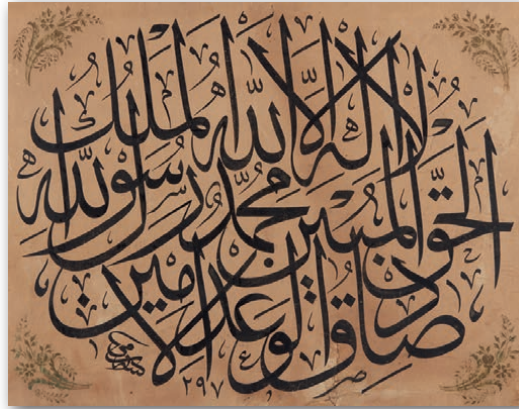 لا إله إلا الله الملك
الحق المبين محمد رسول الله
صادق الوعد الأمين